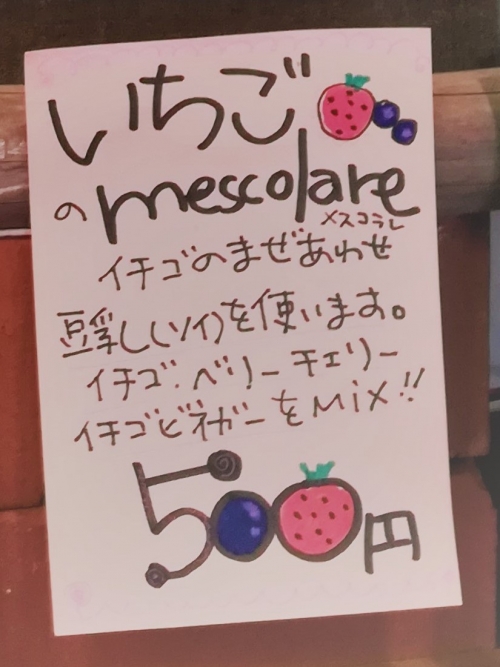 いちご
の mescolare
メスコラレ
イチゴのまぜあわせ
豆乳(ソイ)を使います。
イチゴ.ベリーチェリー
イチゴビネガーをMiX!!
500円